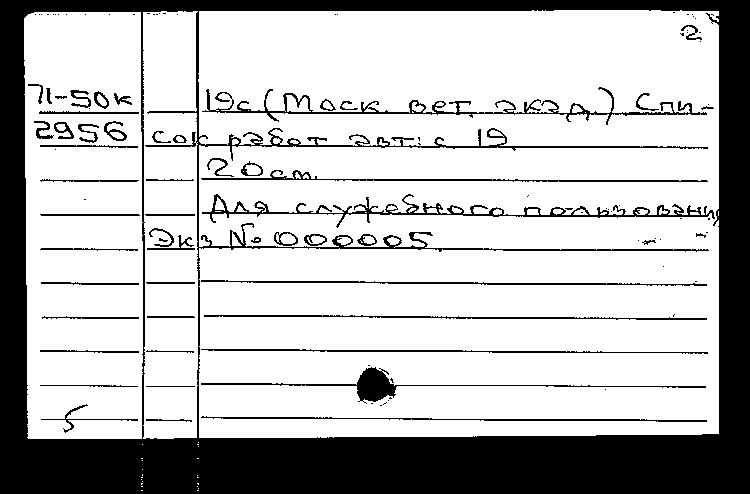 2
71-50к 19с (Моск. вет. акад.) Спи-
2956 сок работ авт: с 19.
20см.
Для служебного пользования
Экз № 000005
5